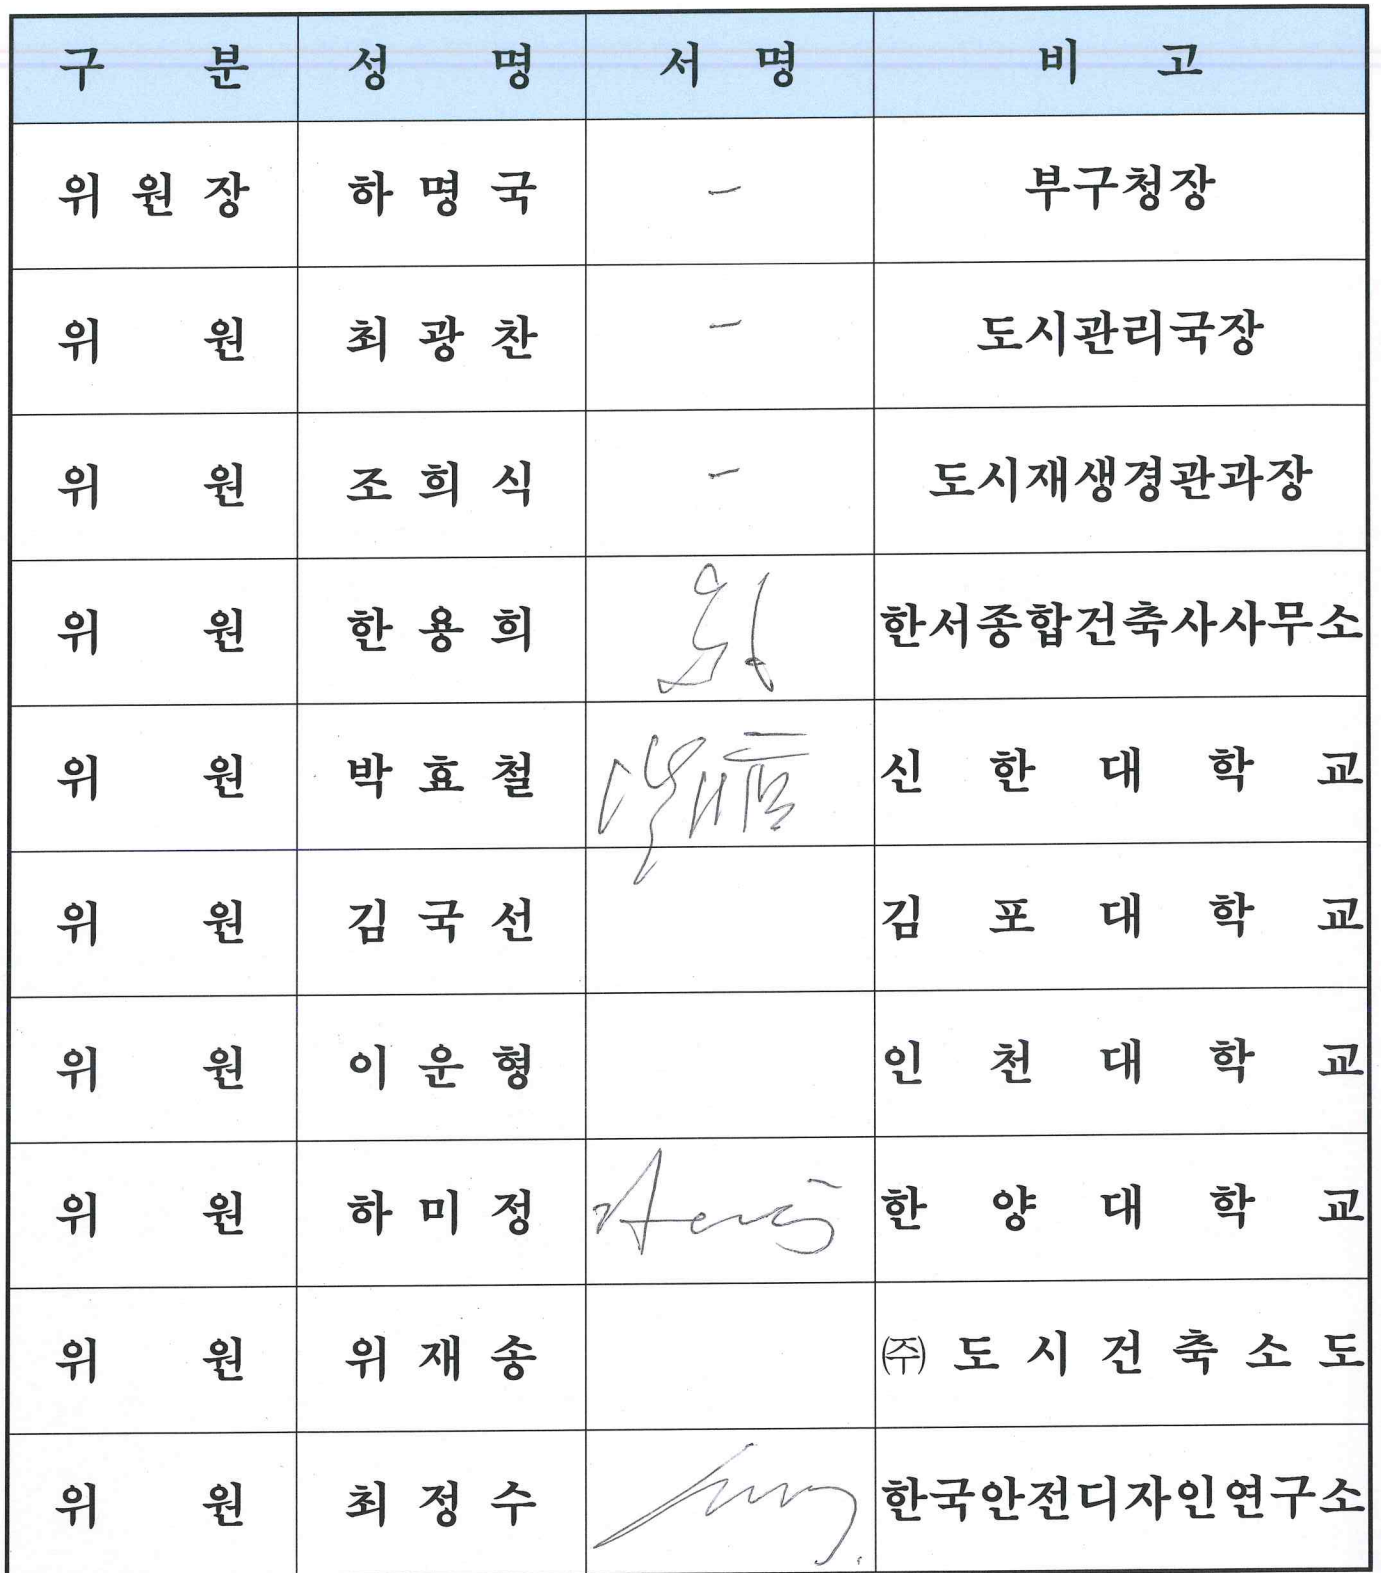 구 분 성 명 서 명 비 고
위 원 장 하 명 국 - 부구청장
위 원 최 광 찬 - 도시관리국장
위 원 조 희 식 - 도시재생경관과장
위 원 한 용 희 한서종합건축사사무소
위 원 박 효 철 신 한 대 학 교
위 원 김 국 선 김 포 대 학 교
위 원 이 운 형 인 천 대 학 교
위 원 하 미 정 한 양 대 학 교
위 원 위 재 송 ㈜ 도 시 건 축 소 도
위 원 최 정 수 한국안전디자인연구소